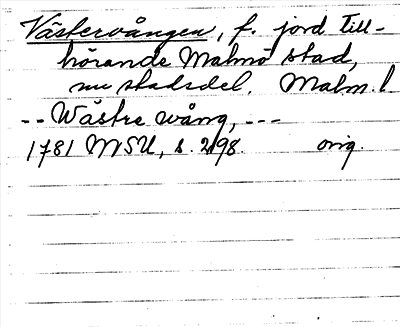 Västervången, f. jord till-
hörande Malmö stad,
nu stadsdel. Malm. l
-- Wästre wång, ---
1781 MSU, s. 298. orig.